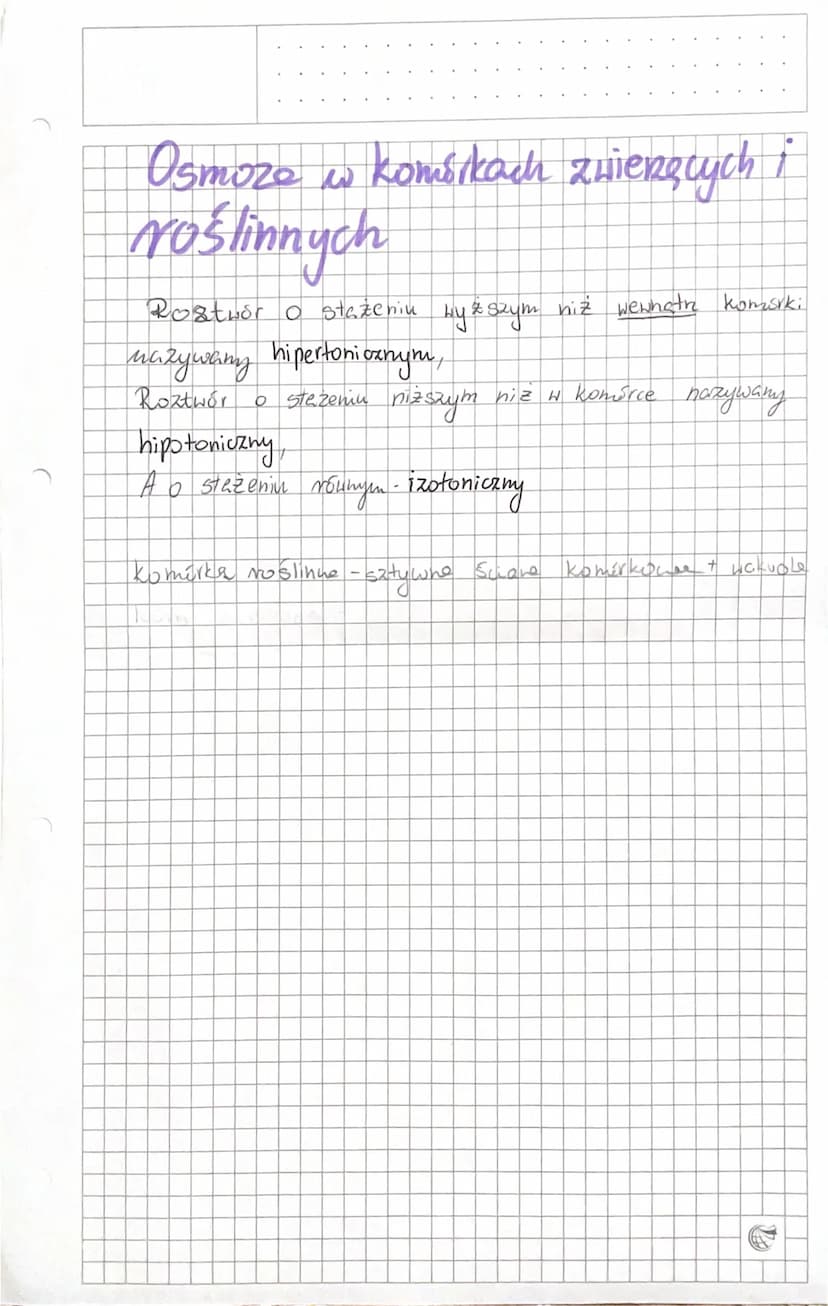 Osmoza w komórkach zwierzęcych i
roślinnych
Roztwór o stężeniu wyższym niż wewnątrz komórki
nazywamy hipertonicznym,
Roztwór o stężeniu niższym niż w komórce nazywamy
hipotoniczny,
A o stężeniu równym - izotoniczny
Komórka roślinna - sztywna ściana komórkowa + wakuola